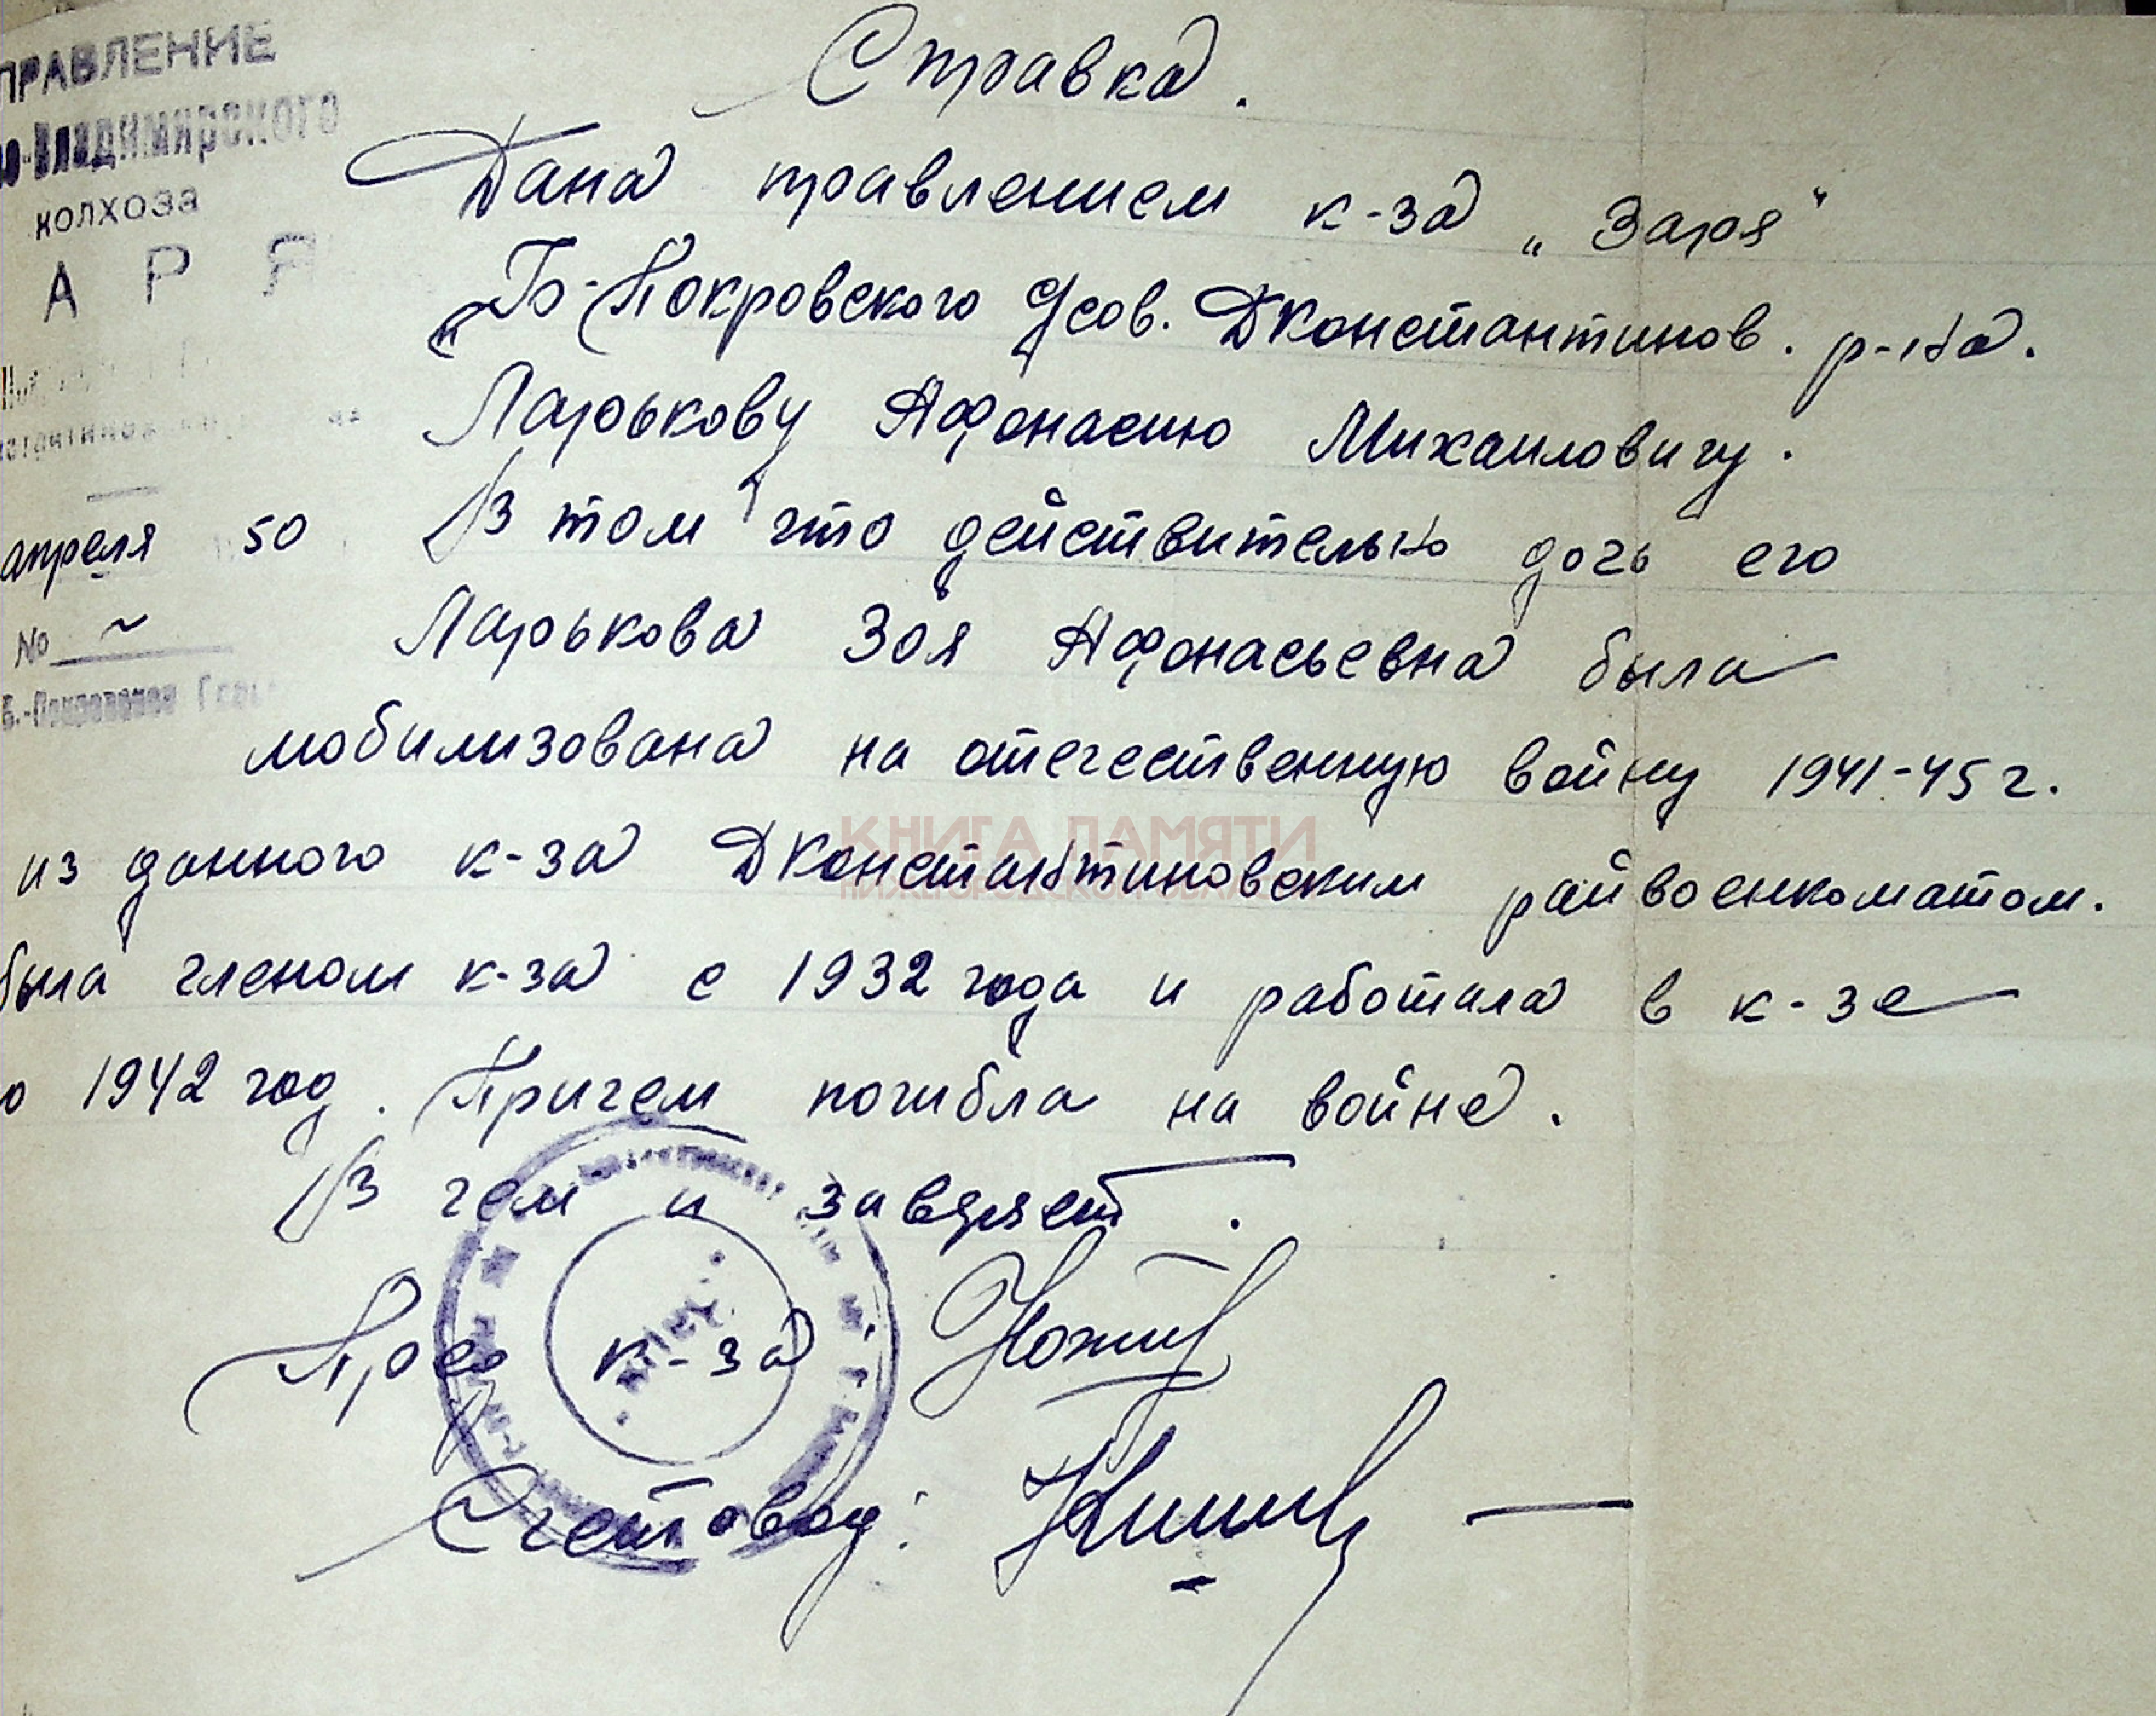 Справка.
ПРАВЛЕНИЕ
-Владимирского
колхоза
А Р Я
апреля 50
№ ~
Б.-Покровское
Дана правлением к-за „Заря"
Б-Покровского с/сов. ДКонстантинов. р-на.
Ларькову Афонасию Михаиловичу.
В том что действительно дочь его
Ларькова Зоя Афонасьевна была
мобилизована на отечественную войну 1941-45 г.
из данного к-за ДКонстантиновским райвоенкоматом.
была членом к-за с 1932 года и работала в к-зе
о 1942 год. Причем погибла на войне.
В чем и завѣряет.
Пред к-за
Счетовод:
КНИГА ПАМЯТИ
НИЖЕГОРОДСКОЙ ОБЛАСТИ